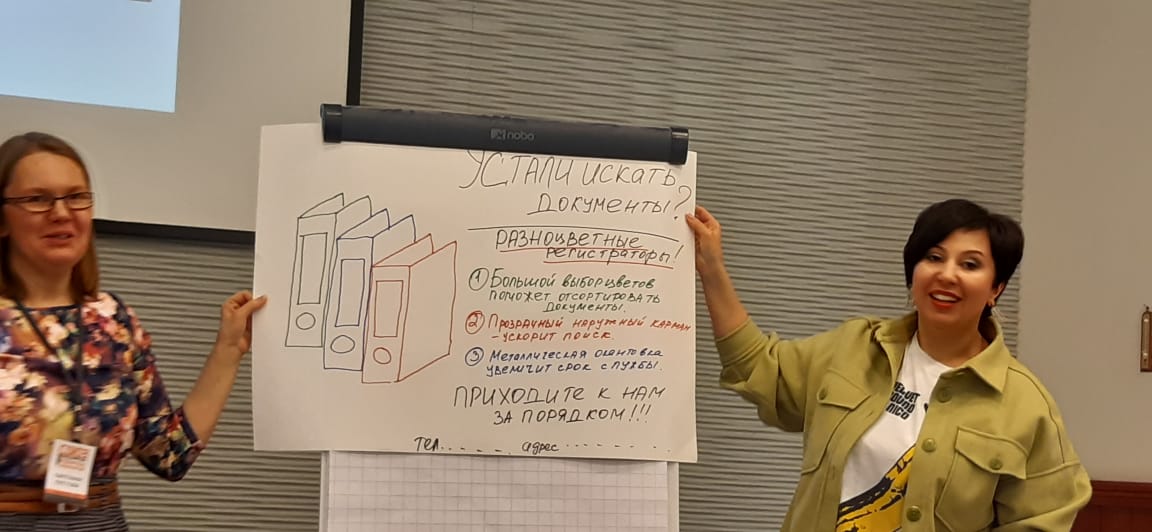 nobo
УСТАЛИ искать
документы?
РАЗНОЦВЕТНЫЕ
регистраторы!
① Большой выбор цветов
поможет отсортировать
документы.
② Прозрачный наружный карман
- ускорит поиск.
③ Металлическая окантовка
увеличит срок службы.
ПРИХОДИТЕ К НАМ
ЗА ПОРЯДКОМ!!!
тел..... адрес.......